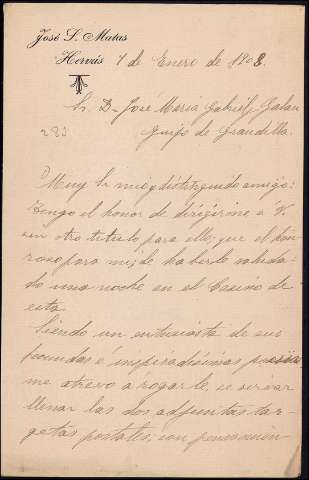 José S. Matas
Hervás 7 de Enero de 1902.
Sr. D. José María Gabriel y Galan
283 Guijo de Granadilla.
Muy Sr. mio y distinguido amigo:
Tengo el honor de dirigirme á V.
sin otro titulo para ello, que el hon-
roso para mi, de haberle saluda-
do una noche en el Casino de
esta.
Siendo un entusiasta de sus
fecundas é inspiradisimas poesias
me atrevo a rogarle, se sirva
llenar las dos adjuntas tar-
getas postales, con pensamien-